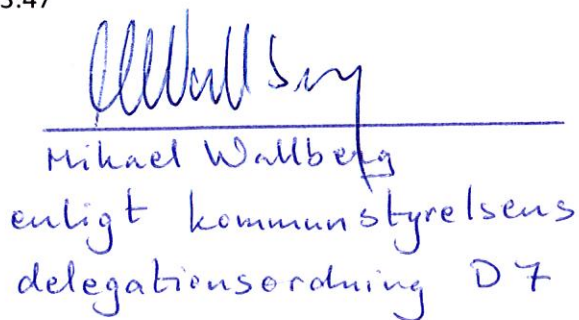 Mikael Wallberg
enligt kommunstyrelsens
delegationsordning D7